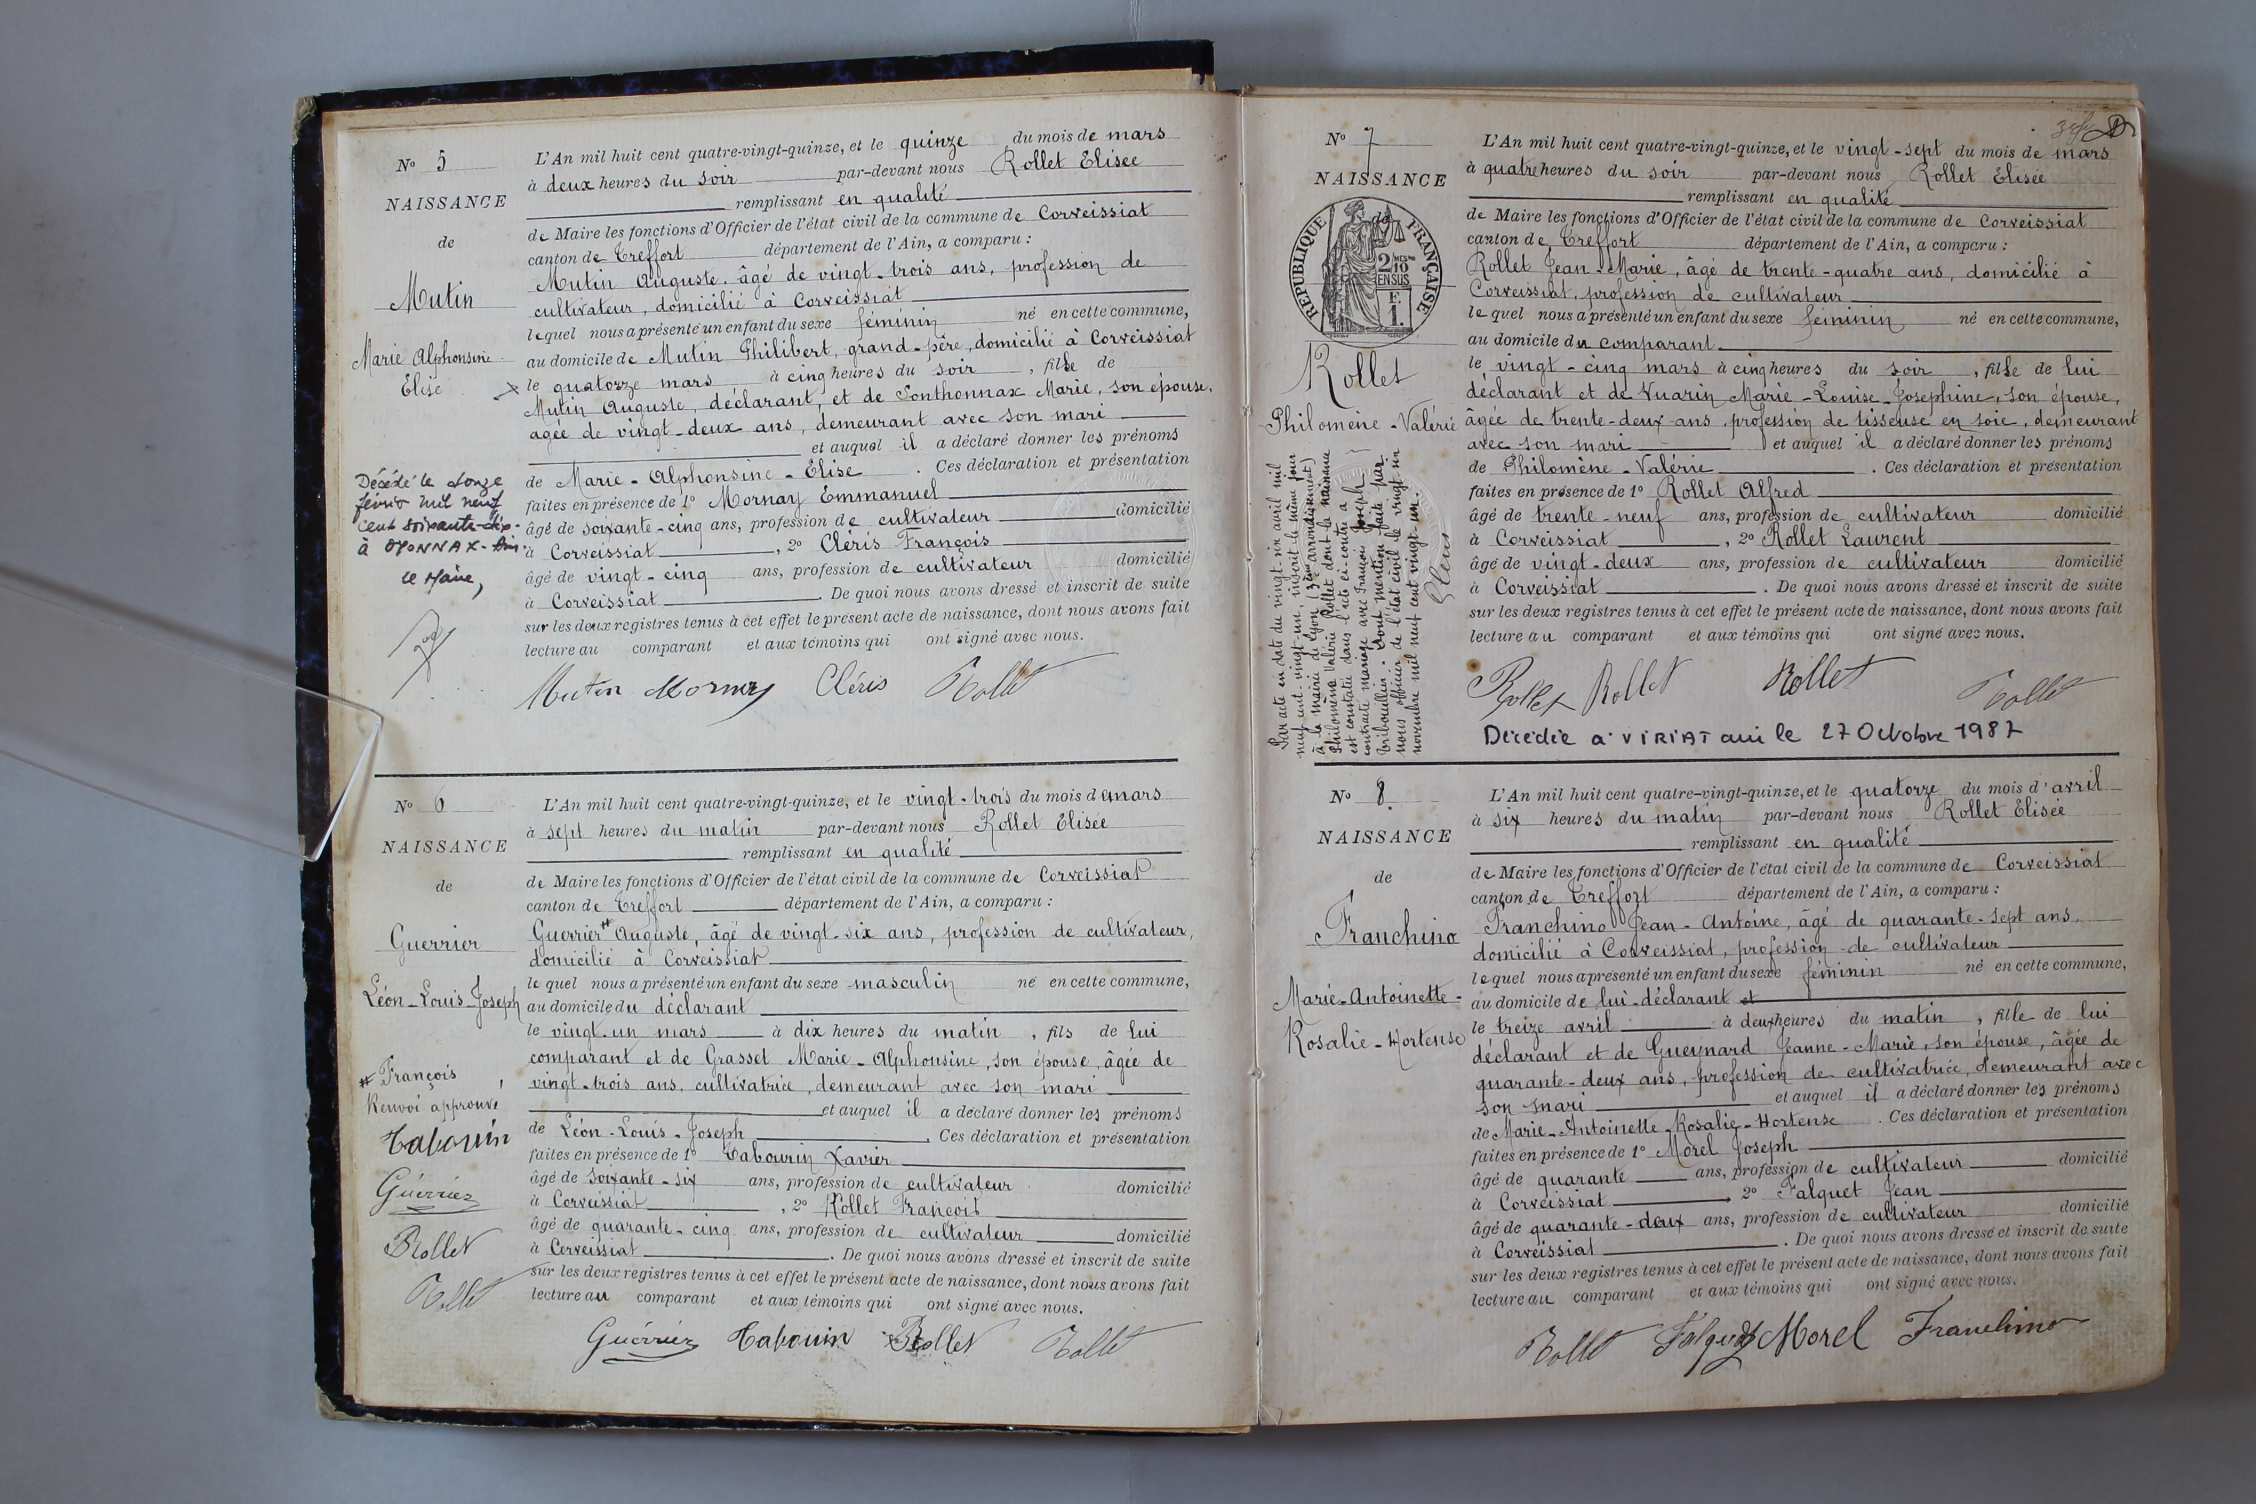 N° 5
NAISSANCE
de
Mutin
Marie Alphonsine
Élise
Décédé le douze
février mil neuf
cent soixante-dix
à OYONNAX - Ain.
Le Maire,
L'An mil huit cent quatre-vingt-quinze, et le quinze du mois de mars
à deux heures du soir par-devant nous Rollet Elisée
remplissant en qualité
de Maire les fonctions d'Officier de l'état civil de la commune de Corveissiat
canton de Treffort département de l'Ain, a comparu :
Mutin Auguste, âgé de vingt-trois ans, profession de
cultivateur, domicilié à Corveissiat
lequel nous a présenté un enfant du sexe féminin né en cette commune,
au domicile de Mutin Philibert, grand-père, domicilié à Corveissiat
le quatorze mars à cinq heures du soir, fille de
Mutin Auguste, déclarant, et de Ponthonnax Marie, son épouse,
agée de vingt-deux ans, demeurant avec son mari
et auquel il a déclaré donner les prénoms
de Marie-Alphonsine-Élise. Ces déclaration et présentation
faites en présence de 1° Mornay Emmanuel
âgé de soixante-cinq ans, profession de cultivateur domicilié
à Corveissiat, 2° Cléris François
âgé de vingt-cinq ans, profession de cultivateur domicilié
à Corveissiat. De quoi nous avons dressé et inscrit de suite
sur les deux registres tenus à cet effet le présent acte de naissance, dont nous avons fait
lecture au comparant et aux témoins qui ont signé avec nous.
Mutin Mornay Cléris Rollet
N° 6
NAISSANCE
de
Guerrier
Léon-Louis-Joseph
# François
Renvoi approuvé
Tabouin
Guérriez
Rollet
Rollet
L'An mil huit cent quatre-vingt-quinze, et le vingt-trois du mois de mars
à sept heures du matin par-devant nous Rollet Elisée
remplissant en qualité
de Maire les fonctions d'Officier de l'état civil de la commune de Corveissiat
canton de Treffort département de l'Ain, a comparu :
Guerrier # Auguste, âgé de vingt-six ans, profession de cultivateur,
domicilié à Corveissiat
lequel nous a présenté un enfant du sexe masculin né en cette commune,
au domicile du déclarant
le vingt-un mars à dix heures du matin, fils de lui
comparant et de Grasset Marie-Alphonsine, son épouse, âgée de
vingt-trois ans, cultivatrice, demeurant avec son mari
et auquel il a déclaré donner les prénoms
de Léon-Louis-Joseph. Ces déclaration et présentation
faites en présence de 1° Tabourin Xavier
âgé de soixante-six ans, profession de cultivateur domicilié
à Corveissiat, 2° Rollet François
âgé de quarante-cinq ans, profession de cultivateur domicilié
à Corveissiat. De quoi nous avons dressé et inscrit de suite
sur les deux registres tenus à cet effet le présent acte de naissance, dont nous avons fait
lecture au comparant et aux témoins qui ont signé avec nous.
Guérriez Tabouin Rollet Rollet
N° 7
NAISSANCE
de
RÉPUBLIQUE FRANÇAISE
2/10 EN SUS
F. 1.
Rollet
Philomène-Valérie
Par acte en date du vingt-six avril mil
neuf cent vingt-un, inscrit le même jour
à la mairie de Lyon (3ème arrondissement)
Philomène Valérie Rollet dont la naissance
est constatée dans l'acte ci-contre a
contracté mariage avec François Joseph
Tribouillier. Dont mention faite par
nous officier de l'état civil le vingt-six
novembre mil neuf cent vingt-un.
L'An mil huit cent quatre-vingt-quinze, et le vingt-sept du mois de mars
à quatre heures du soir par-devant nous Rollet Elisée
remplissant en qualité
de Maire les fonctions d'Officier de l'état civil de la commune de Corveissiat
canton de Treffort département de l'Ain, a comparu :
Rollet Jean-Marie, âgé de trente-quatre ans, domicilié à
Corveissiat, profession de cultivateur
lequel nous a présenté un enfant du sexe féminin né en cette commune,
au domicile du comparant
le vingt-cinq mars à cinq heures du soir, fille de lui
déclarant et de Vuarin Marie-Louise-Joséphine, son épouse,
âgée de trente-deux ans, profession de tisseuse en soie, demeurant
avec son mari et auquel il a déclaré donner les prénoms
de Philomène-Valérie. Ces déclaration et présentation
faites en présence de 1° Rollet Alfred
âgé de trente-neuf ans, profession de cultivateur domicilié
à Corveissiat, 2° Rollet Laurent
âgé de vingt-deux ans, profession de cultivateur domicilié
à Corveissiat. De quoi nous avons dressé et inscrit de suite
sur les deux registres tenus à cet effet le présent acte de naissance, dont nous avons fait
lecture au comparant et aux témoins qui ont signé avec nous.
Rollet Rollet Rollet Rollet
Décédée à VIRIAT ain le 27 Octobre 1987
N° 8.
NAISSANCE
de
Franchino
Marie-Antoinette-
Rosalie-Hortense
L'An mil huit cent quatre-vingt-quinze, et le quatorze du mois d'avril
à six heures du matin par-devant nous Rollet Elisée
remplissant en qualité
de Maire les fonctions d'Officier de l'état civil de la commune de Corveissiat
canton de Treffort département de l'Ain, a comparu :
Franchino Jean-Antoine, âgé de quarante-sept ans,
domicilié à Corveissiat, profession de cultivateur
lequel nous a présenté un enfant du sexe féminin né en cette commune,
au domicile de lui-déclarant et
le treize avril à deux heures du matin, fille de lui
déclarant et de Gueynard Jeanne-Marie, son épouse, âgée de
quarante-deux ans, profession de cultivatrice, demeurant avec
son mari et auquel il a déclaré donner les prénoms
de Marie-Antoinette-Rosalie-Hortense. Ces déclaration et présentation
faites en présence de 1° Morel Joseph
âgé de quarante ans, profession de cultivateur domicilié
à Corveissiat, 2° Falquet Jean
âgé de quarante-deux ans, profession de cultivateur domicilié
à Corveissiat. De quoi nous avons dressé et inscrit de suite
sur les deux registres tenus à cet effet le présent acte de naissance, dont nous avons fait
lecture au comparant et aux témoins qui ont signé avec nous.
Rollet Falquet Morel Franchino